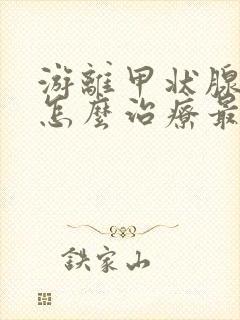 游離甲状腺
怎麼治療最
鉄家山